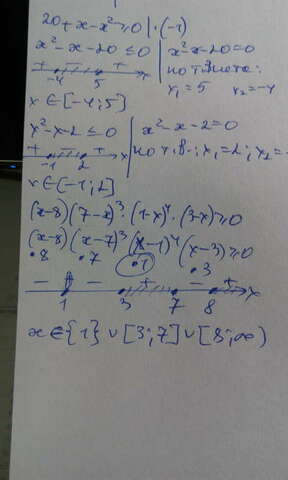 20 + x - x² ≥ 0 | · (-1)
x² - x - 20 ≤ 0 | x² - x - 20 = 0
по т Виета:
+ - + x
-4 5
x₁ = 5 x₂ = -4
x ∈ [-4; 5]
x² - x - 2 ≤ 0 | x² - x - 2 = 0
+ - + x
-1 2
по т. В-: x₁ = 2; x₂ = -
x ∈ [-1; 2]
(x-8)(7-x)³ · (1-x)⁴ · (3-x) ≥ 0
(x-8)(x-7)³(x-1)⁴(x-3) ≥ 0
• 8 • 7 • 1 • 3
- - + - + x
1 3 7 8
x ∈ {1} ∪ [3; 7] ∪ [8; ∞)